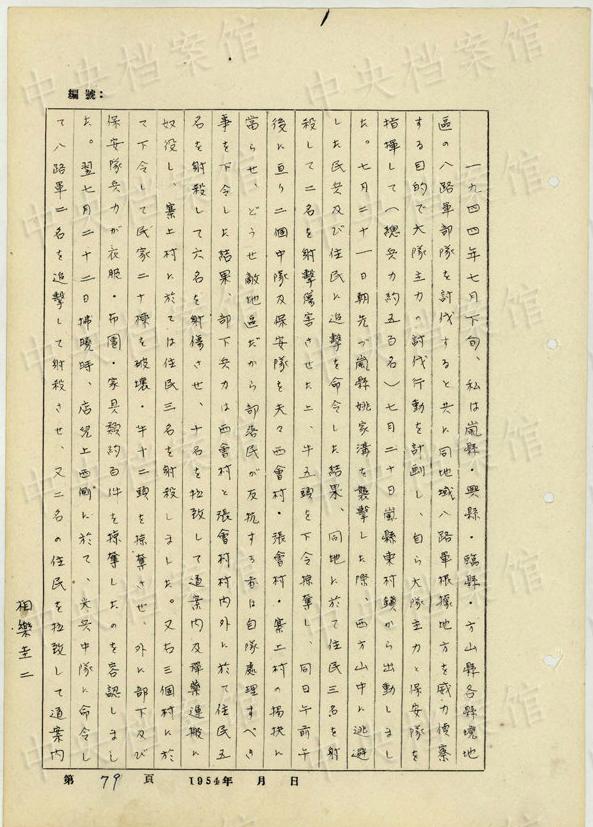 編號：
一九四四年七月下旬、私は嵐縣・興縣・臨縣・方山縣各縣境地
區の八路軍部隊を討伐すると共に同地域八路軍根據地方を威力偵察
する目的で大隊主力の討伐行動を計劃し、自ら大隊主力と保安隊を
指揮して（總兵力約五百名）七月二十日嵐縣東村鎮から出動しまし
た。七月二十一日朝先づ嵐縣姚家溝を襲擊した際、西方山中に逃避
した民兵及び住民に追擊を命令した結果、同地に於て住民三名を射
殺して二名を射擊傷害させた上、牛五頭を下令掠奪し、同日午前午
後に亘り二個中隊及保安隊を夫々西會村・張會村・寨上村の掃蕩に
當らせ、どうせ敵地區だから部落民が反抗する者は自隊處理すべき
事を下令した結果、部下兵力は西會村と張會村村內外に於て住民五
名を射殺して六名を射傷させ、十名を拉致して道案內及彈藥運搬に
奴役し、寨上村に於ては住民三名を射殺しました。又右三個村に於
て下令して民家二十棟を破壞・牛十二頭を掠奪させ、外に部下及び
保安隊兵力が衣服・布團・家具類約百件を掠奪したのを容認しまし
た。翌七月二十二日拂曉時、店兒上西側に於て、尖兵中隊に命令し
て八路軍二名を追擊して射殺させ、又二名の住民を拉致して道案內
相樂圭二
第 79 頁 1954年 月 日
中央档案馆